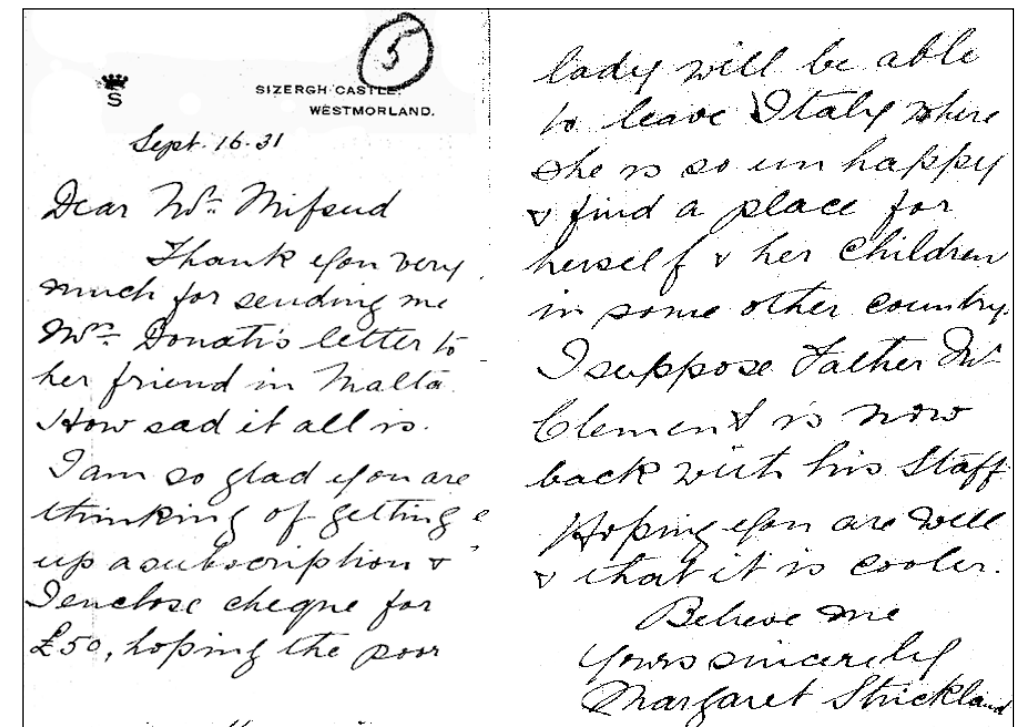 5
S
SIZERGH CASTLE.
WESTMORLAND.
Sept. 16. 31
Dear Mr. Mifsud
Thank you very
much for sending me
Mrs. Donati's letter to
her friend in Malta.
How sad it all is.
I am so glad you are
thinking of getting
up a subscription &
I enclose cheque for
£50, hoping the poor
lady will be able
to leave Italy where
she is so un happy
& find a place for
herself & her children
in some other country.
I suppose Father Mt
Clement is now
back with his Staff
Hoping you are well
& that it is cooler.
Believe me
Yours sincerely
Margaret Strickland